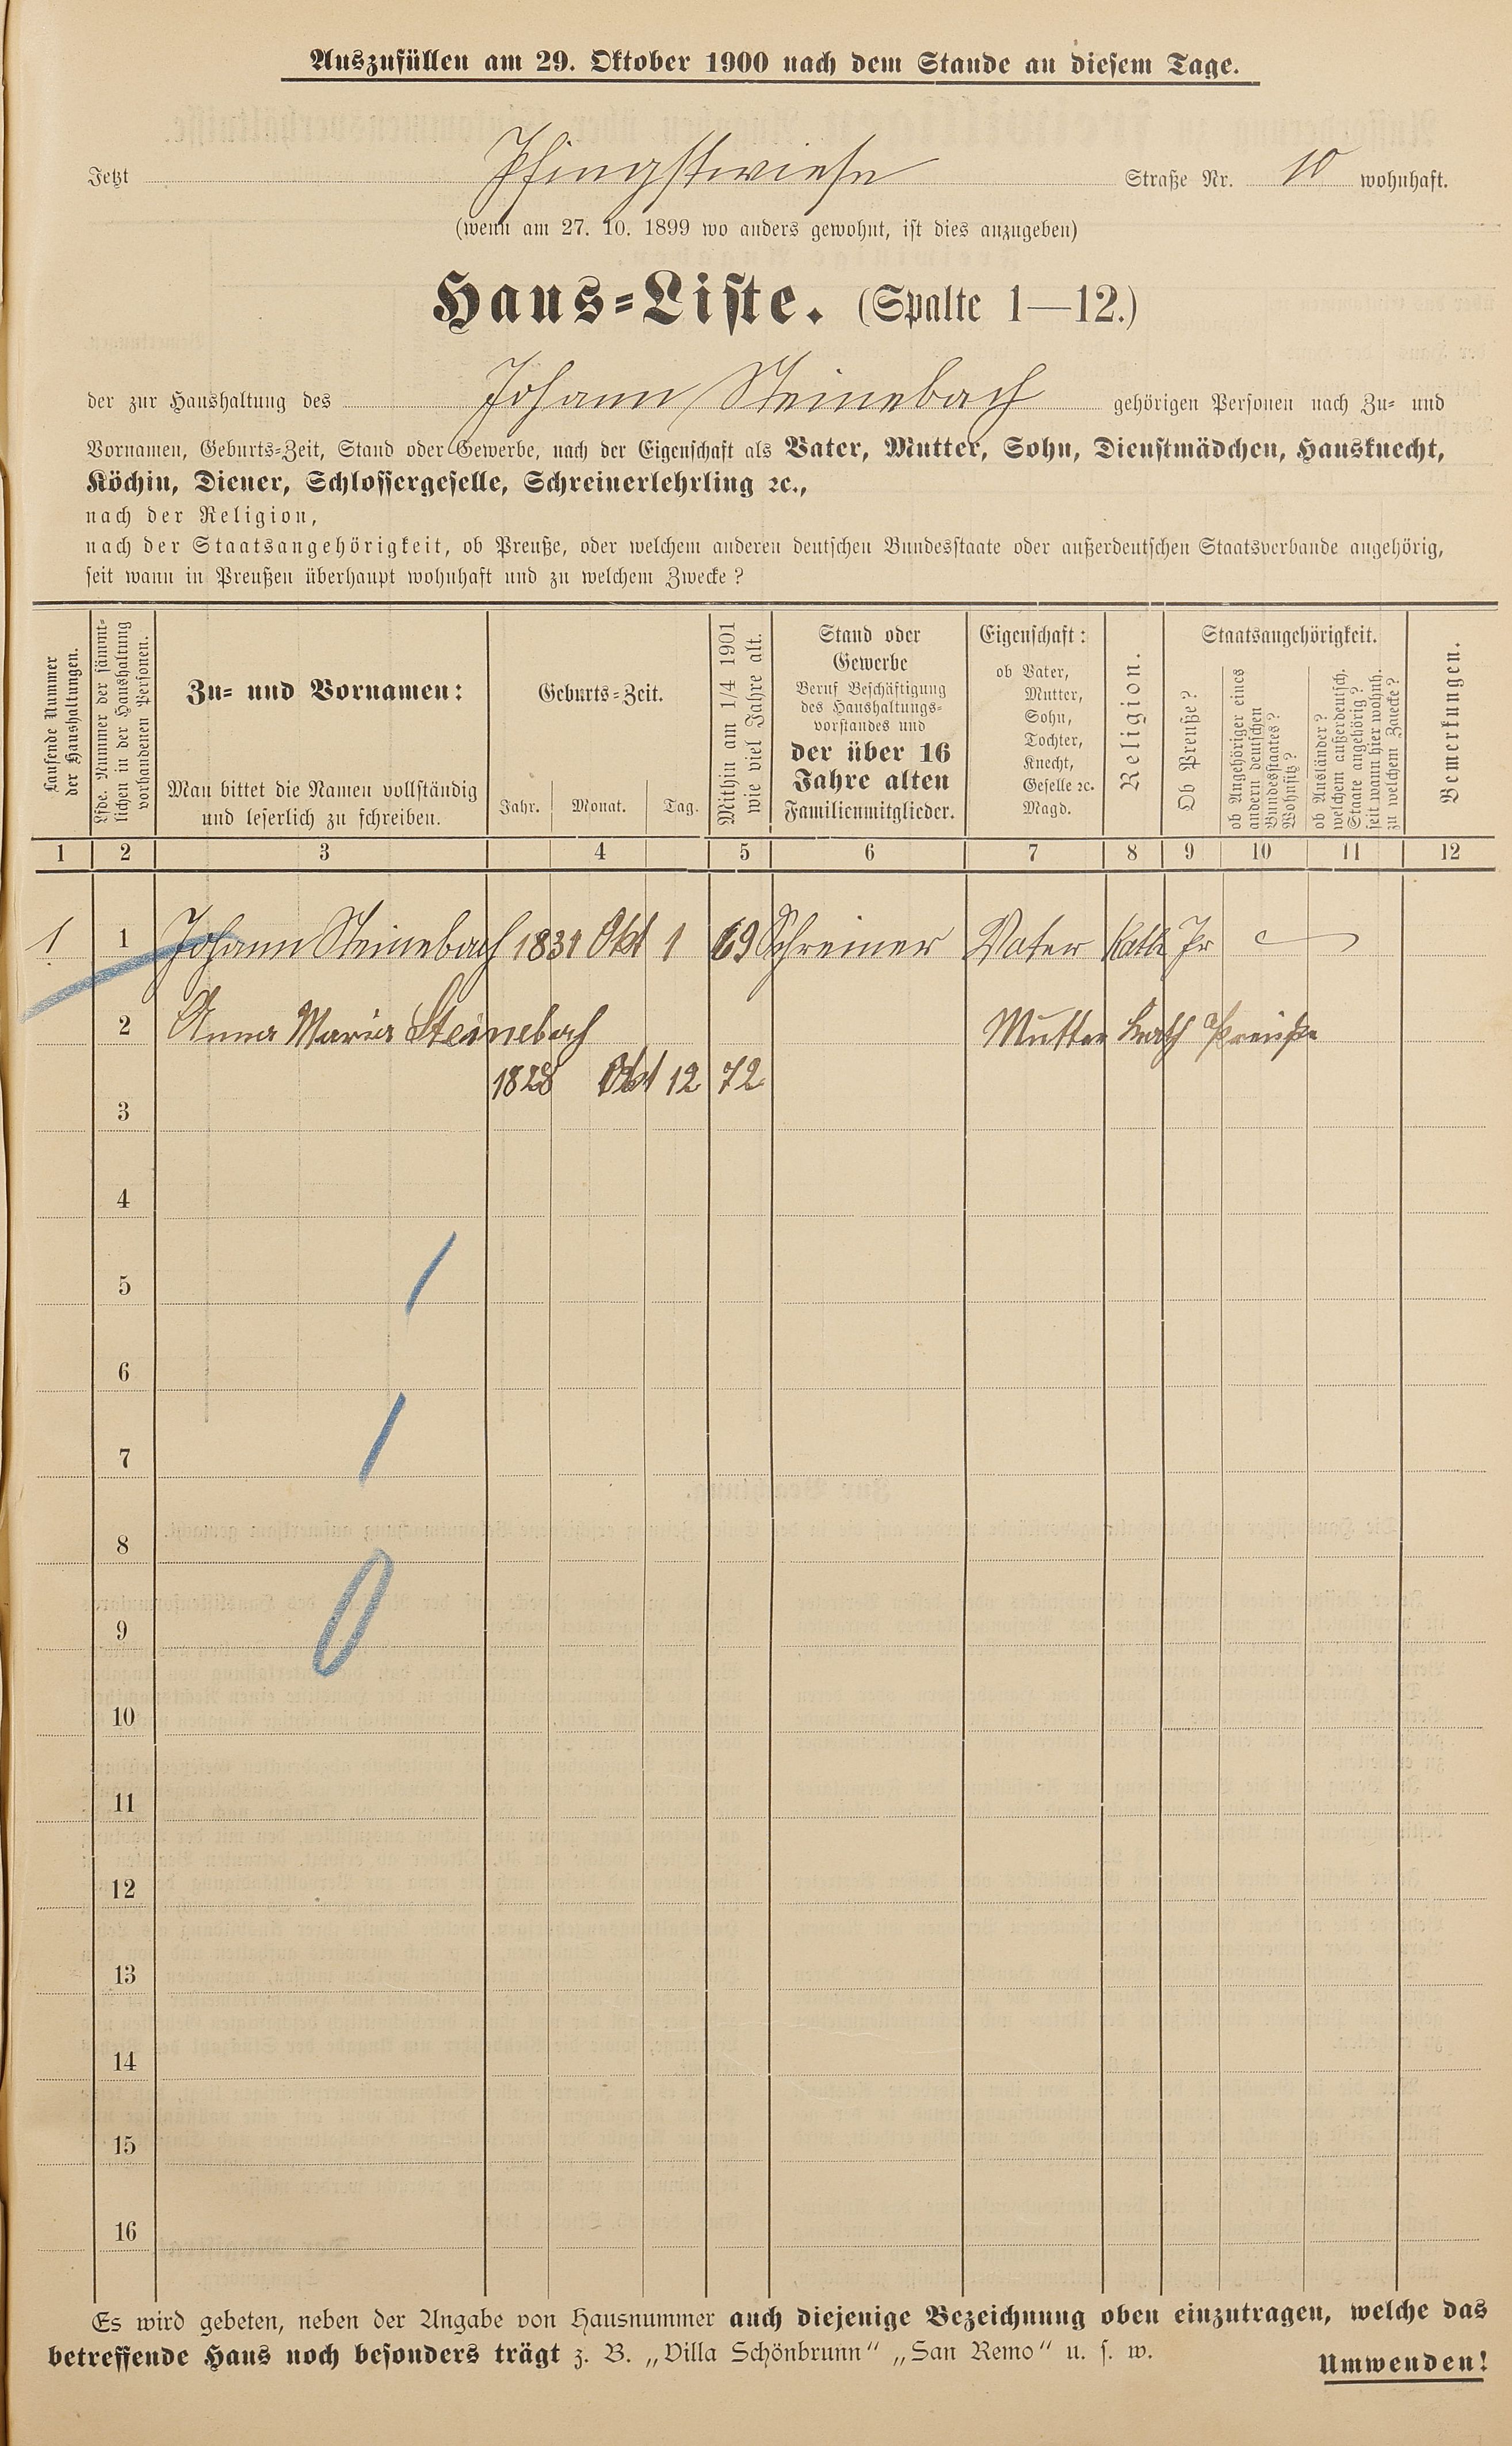 Auszufüllen am 29. Oktober 1900 nach dem Stande an diesem Tage.
Jetzt Pfingstwiese Straße Nr. 10 wohnhaft.
(wenn am 27. 10. 1899 wo anders gewohnt, ist dies anzugeben)
Haus=Liste. (Spalte 1—12.)
der zur Haushaltung des Johann Steinebach gehörigen Personen nach Zu- und
Vornamen, Geburts-Zeit, Stand oder Gewerbe, nach der Eigenschaft als Vater, Mutter, Sohn, Dienstmädchen, Hausknecht,
Köchin, Diener, Schlossergeselle, Schreinerlehrling ꝛc.,
nach der Religion,
nach der Staatsangehörigkeit, ob Preuße, oder welchem anderen deutschen Bundesstaate oder außerdeutschen Staatsverbande angehörig,
seit wann in Preußen überhaupt wohnhaft und zu welchem Zwecke?
Laufende Nummer
der Haushaltungen.
Lfde. Nummer der sämmt-
lichen in der Haushaltung
vorhandenen Personen.
Zu- und Vornamen:
Man bittet die Namen vollständig
und leserlich zu schreiben.
Geburts-Zeit.
Jahr. Monat. Tag.
Mithin am 1/4 1901
wie viel Jahre alt.
Stand oder
Gewerbe
Beruf Beschäftigung
des Haushaltungs-
vorstandes und
der über 16
Jahre alten
Familienmitglieder.
Eigenschaft:
ob Vater,
Mutter,
Sohn,
Tochter,
Knecht,
Geselle ꝛc.
Magd.
Religion.
Staatsangehörigkeit.
Ob Preuße?
ob Angehöriger eines
andern deutschen
Bundesstaates?
Wohnsitz?
ob Ausländer?
welchem außerdeutsch.
Staate angehörig?
seit wann hier wohnh.
zu welchem Zwecke?
Bemerkungen.
1 2 3 4 5 6 7 8 9 10 11 12
1 1 Johann Steinebach 1831 Okt 1 69 Schreiner Vater Kath Pr
2 Anna Maria Steinebach Mutter Kath Preuße
1828 Okt 12 72
3
4
5
6
7
8
9
10
11
12
13
14
15
16
Es wird gebeten, neben der Angabe von Hausnummer auch diejenige Bezeichnung oben einzutragen, welche das
betreffende Haus noch besonders trägt z. B. „Villa Schönbrunn“ „San Remo“ u. s. w.
Umwenden!